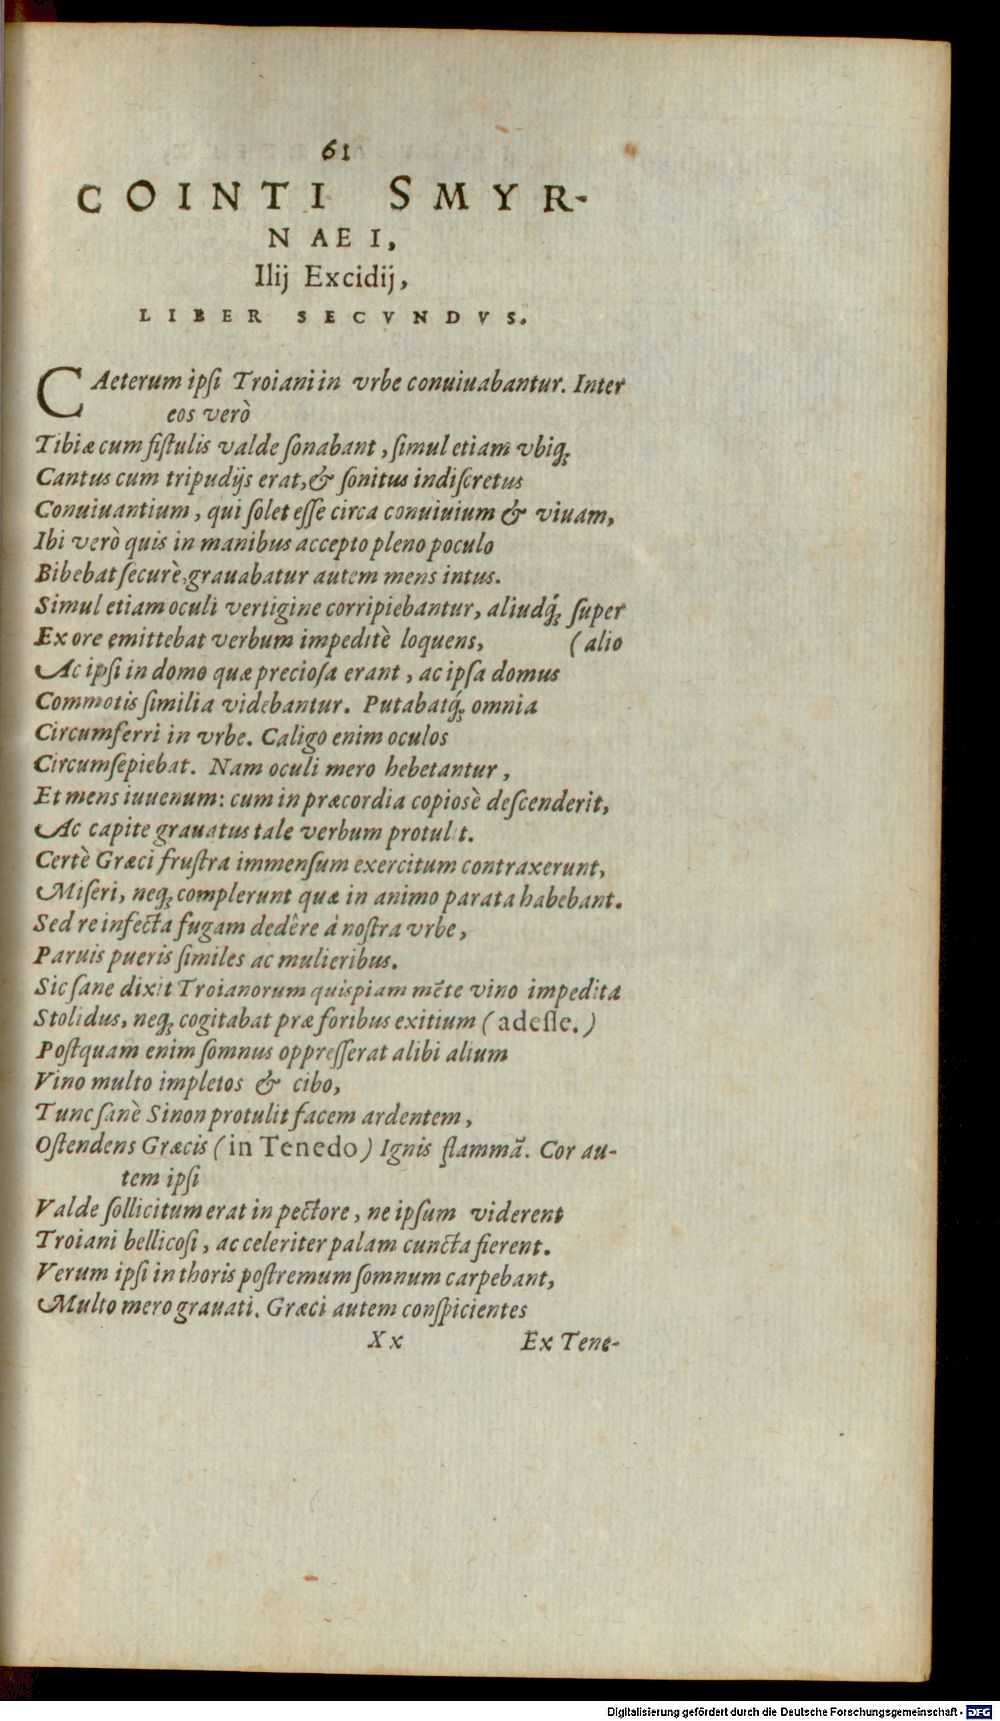 61
COINTI SMYR-
NAEI,
Ilij Excidij,
LIBER SECVNDVS.
CAeterum ipſi Troiani in vrbe conuiuabantur. Inter
eos verò
Tibiæ cum fiſtulis valde ſonabant, ſimul etiam vbiq́;
Cantus cum tripudijs erat, & ſonitus indiſcretus
Conuiuantium, qui ſolet eſſe circa conuiuium & viuam,
Ibi verò quis in manibus accepto pleno poculo
Bibebat ſecurè, grauabatur autem mens intus.
Simul etiam oculi vertigine corripiebantur, aliudq́; ſuper
Ex ore emittebat verbum impeditè loquens, (alio
Ac ipſi in domo quæ precioſa erant, ac ipſa domus
Commotis ſimilia videbantur. Putabatq́; omnia
Circumferri in vrbe. Caligo enim oculos
Circumſepiebat. Nam oculi mero hebetantur,
Et mens iuuenum: cum in præcordia copiosè deſcenderit,
Ac capite grauatus tale verbum protulit.
Certè Græci fruſtra immenſum exercitum contraxerunt,
Miſeri, neq; complerunt quæ in animo parata habebant.
Sed re infecta fugam dedêre à noſtra vrbe,
Paruis pueris ſimiles ac mulieribus.
Sic ſane dixit Troianorum quispiam mẽte vino impedita
Stolidus, neq; cogitabat præ foribus exitium (adeſſe.)
Poſtquam enim ſomnus oppreſſerat alibi alium
Vino multo impletos & cibo,
Tunc ſanè Sinon protulit facem ardentem,
Oſtendens Græcis (in Tenedo) Ignis flammã. Cor au-
tem ipſi
Valde ſollicitum erat in pectore, ne ipſum viderent
Troiani bellicoſi, ac celeriter palam cuncta fierent.
Verum ipſi in thoris poſtremum ſomnum carpebant,
Multo mero grauati. Græci autem conſpicientes
Xx Ex Tene-
Digitalisierung gefördert durch die Deutsche Forschungsgemeinschaft - DFG